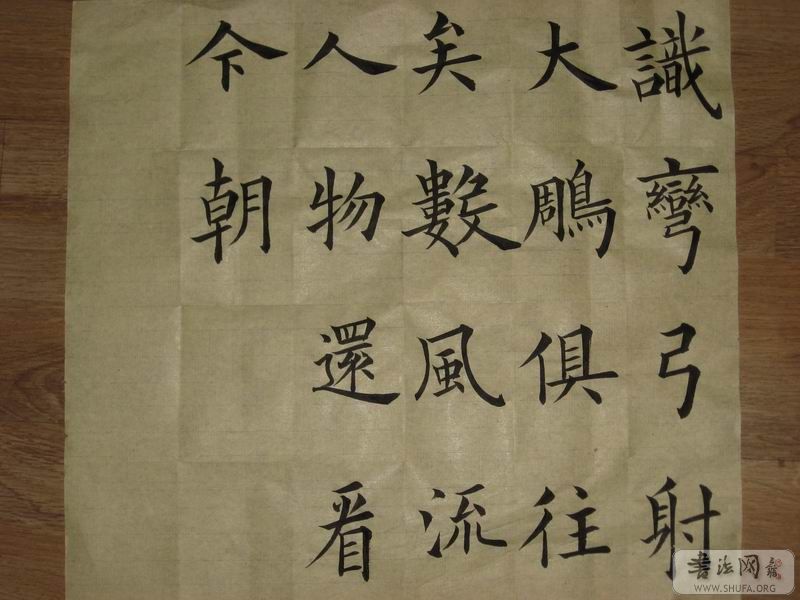 識彎弓射
大鵰俱往
矣數風流
人物還看
今朝
書法网
WWW.SHUFA.ORG